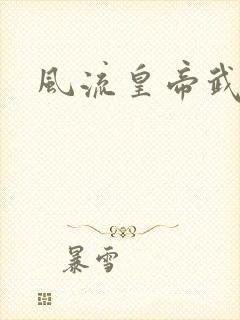 風流皇帝武
暴雪